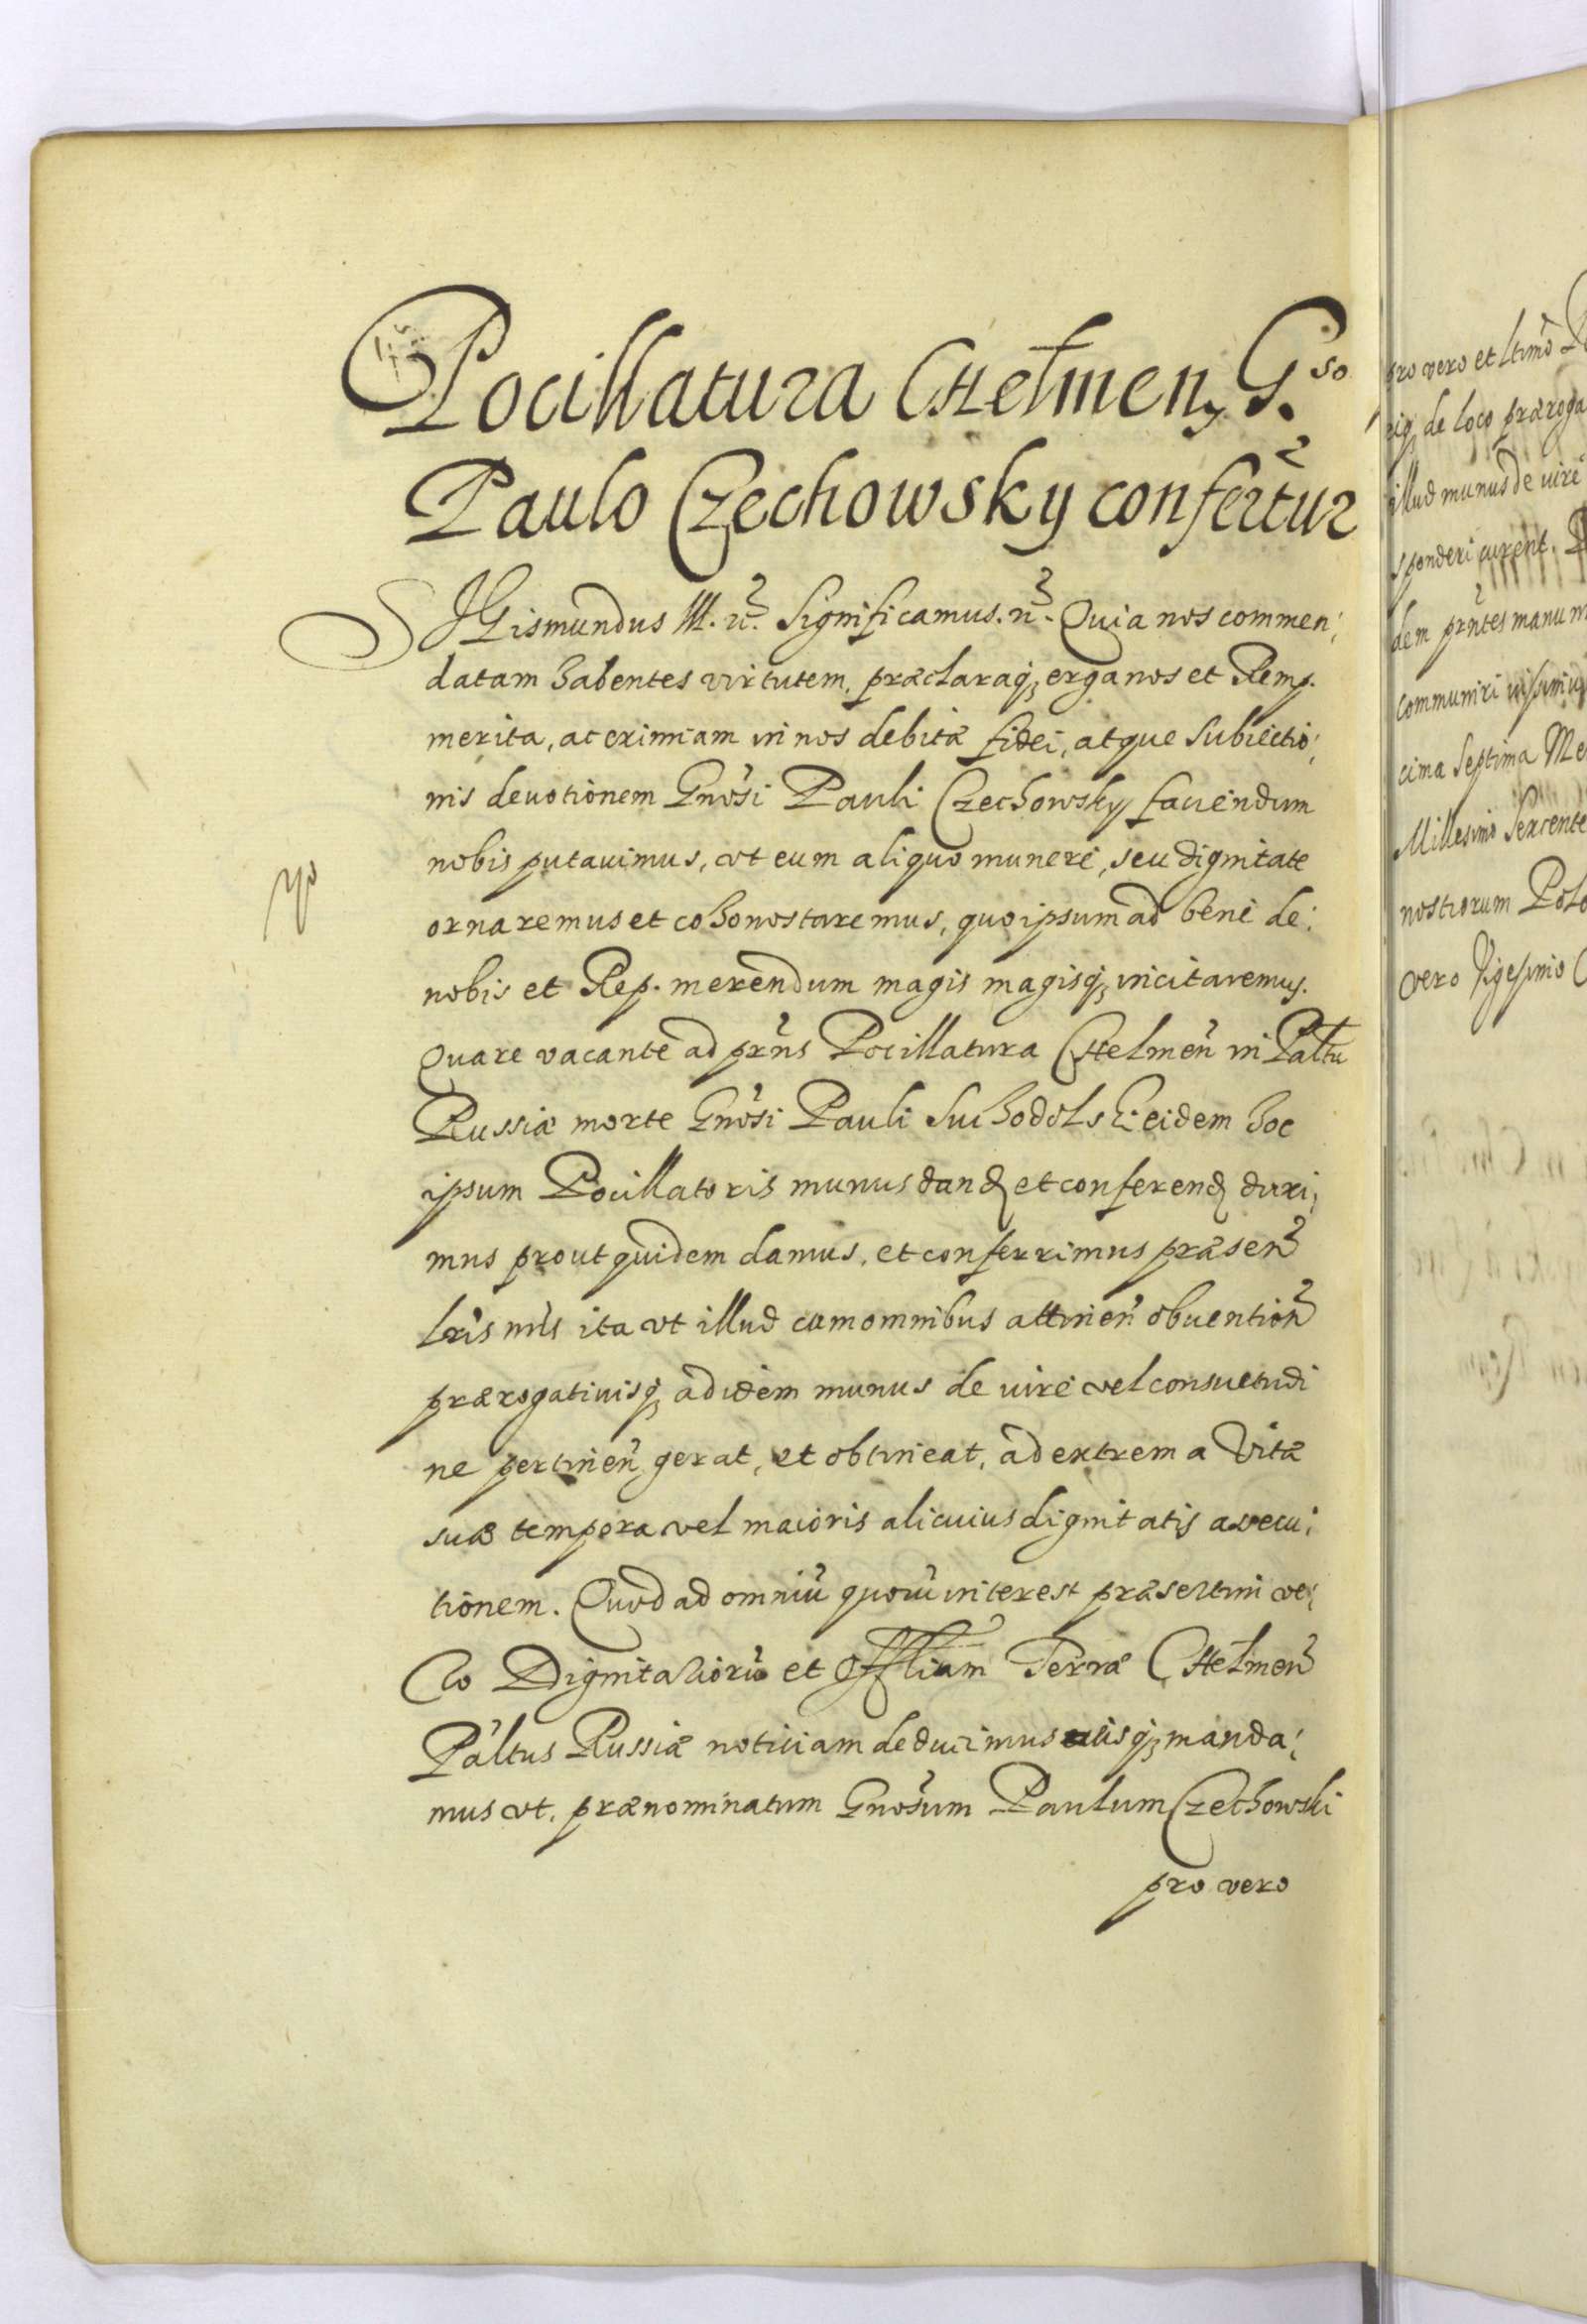 Pocillatura CHelmen, G.so
Paulo Czechowsky confertur
SIGismundus III. etc. Significamus. etc. Quia nos commen:
datam habentes virtutem, præclaraq; erga nos et Remp.
merita, ac eximiam in nos debitæ fidei, atque Subiectio:
nis deuotionem Gnosi Pauli Czechowsky fauendum
nobis putauimus, vt eum aliquo munere, seu dignitate
ornaremus et cohonostaremus, quo ipsum ad bene de:
nobis et Rep. merendum magis magisq; incitaremus.
Quare vacante ad prns Pocillatura CHelmen in Paltu
Russiæ morte Gnosi Pauli Suchodolski eidem hoc
ipsum Pocillatoris munus dand et conferend duxi:
mus prout quidem damus, et conferrimus præsen
lris nris ita vt illud cum omnibus attinen obuention
prærogatiuisq; ad idem munus de iure vel consuetudi
ne pertinen gerat, et obtineat, ad extrema Vitæ
suæ tempora vel maioris alicuius dignitatis assecu:
tionem. Quod ad omniu quoru interest præsertim ve:
ro Dignitarioru et Offlium Terræ CHelmen
Paltus Russiæ notitiam deducimus eisq; manda:
mus vt. prænominatum Gnosum Paulum Czechowski
pro vero
pro vero et ltimo
de loco præroga
illud munus de iure
sponderi curent.
dem prntes manu n
communiri iussimus
cima Septima Me
Millesimo Sexcente
nostrorum Polo
vero Vigesimo